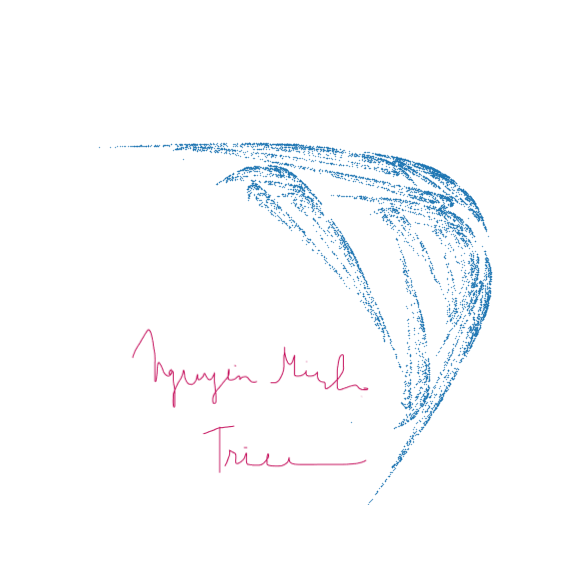 Nguyen Minh
Triet